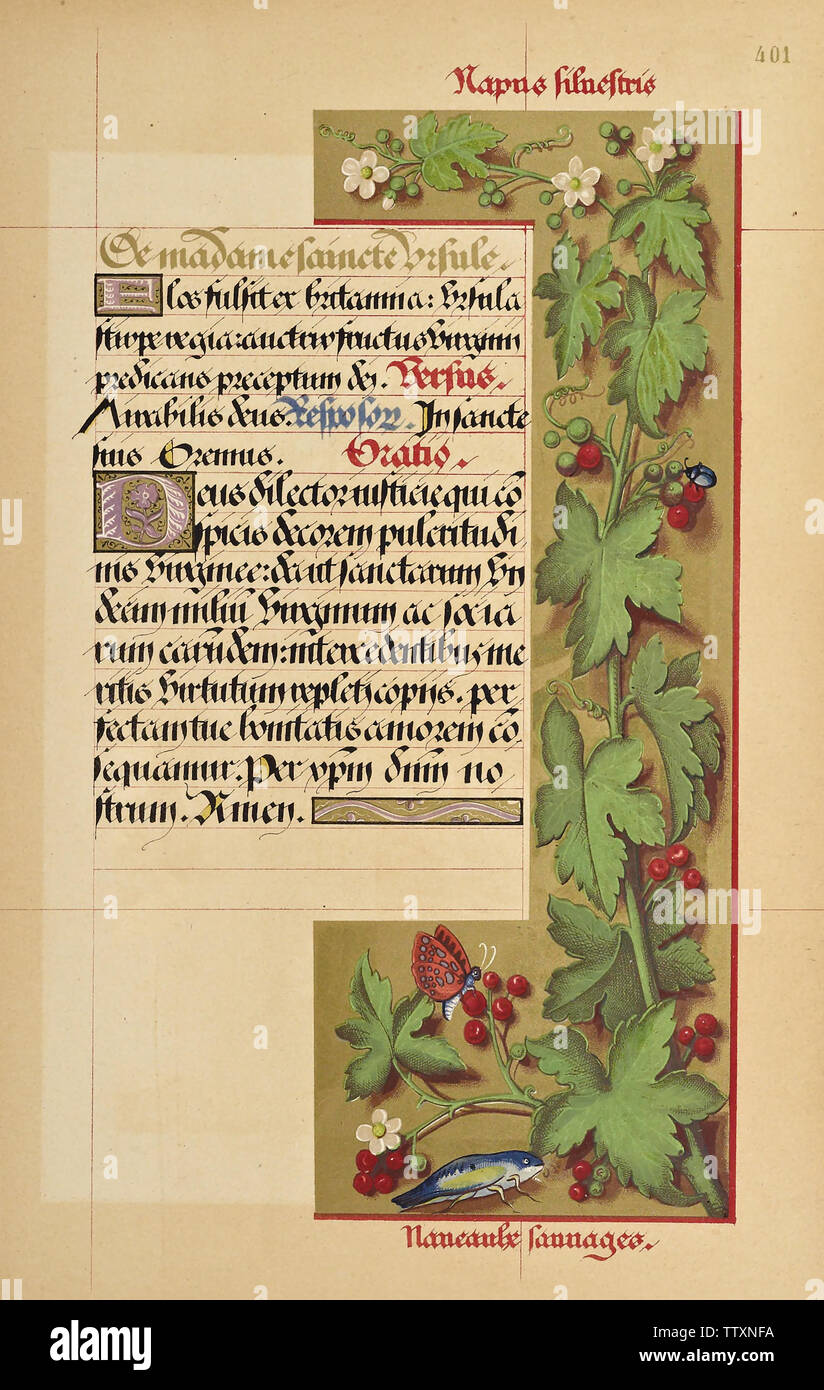 401
Napus silvestris
De madame saincte Ursule.
Flos fulsit ex britannia: Ursula
stirpe regia: auctrix fructus Virginu
predicans preceptum dei. Versus.
Mirabilis deus. Responsor. In sanctis
suis Oremus. Oratio.
Deus dilector iusticie qui co
spicis decorem pulcritudi
nis Virginee: da ut sanctarum Un
decim miliu Virginum ac socia
rum earumdem: intercedentibus me
ritis Virtutum repleti copijs. per
fectam tue bonitatis amorem co
sequamur. Per xpm dnm no
strum. Amen.
Naveaulx sauvages.
alamy
Image ID: TTXNFA
www.alamy.com